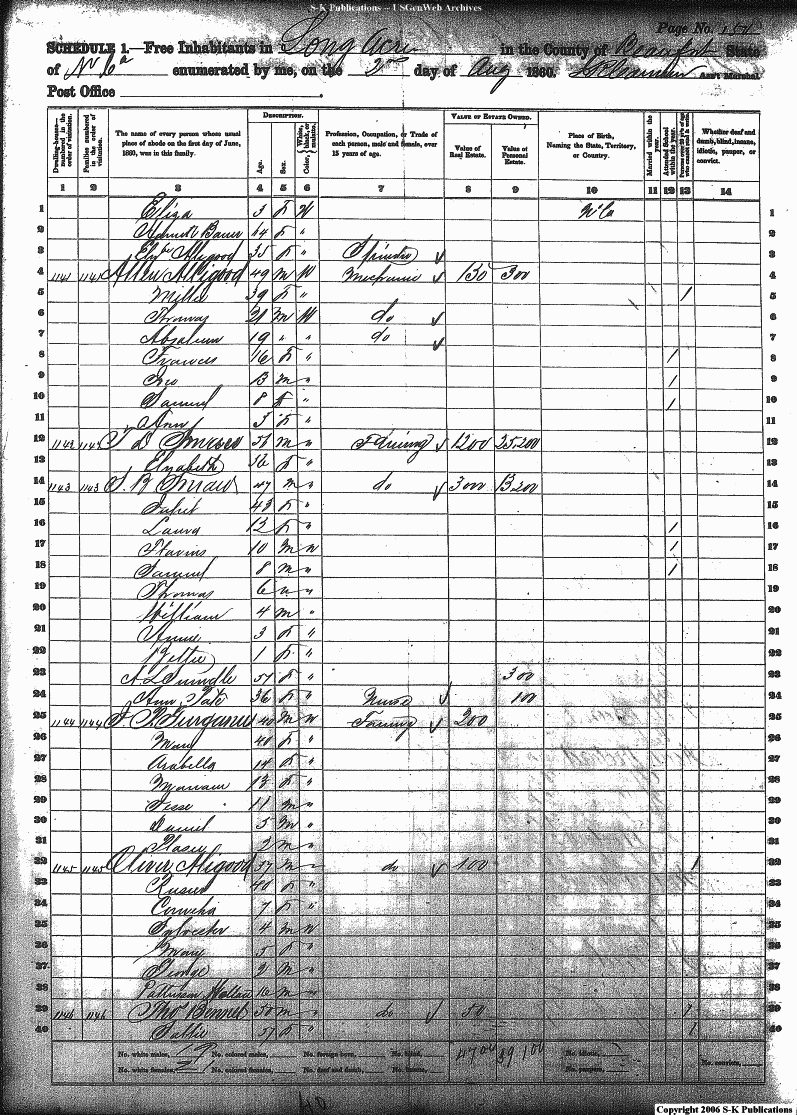 S-K Publications – USGenWeb Archives
Page No. 154
SCHEDULE 1.—Free Inhabitants in Long Acre in the County of Beaufort State
of N Ca enumerated by me, on the 2nd day of Aug 1860. Ass't Marshal.
Post Office
Dwelling-house—numbered in the order of visitation.
Families numbered in the order of visitation.
The name of every person whose usual place of abode on the first day of June, 1860, was in this family.
DESCRIPTION.
Age.
Sex.
Color, White, black, or mulatto.
Profession, Occupation, or Trade of each person, male and female, over 15 years of age.
VALUE OF ESTATE OWNED.
Value of Real Estate.
Value of Personal Estate.
Place of Birth, Naming the State, Territory, or Country.
Married within the year.
Attended School within the year.
Persons over 20 y'rs of age who cannot read & write.
Whether deaf and dumb, blind, insane, idiotic, pauper, or convict.
1 2 3 4 5 6 7 8 9 10 11 12 13 14
1 Eliza 3 F W N Ca 1
2 Bauer 14 F " 2
3 Alligood 35 F " 3
4 1141 1141 Allen Alligood 49 M W Mechanic 130 300 4
5 Millie 39 F " / 5
6 Thomas 21 M W do 6
7 Absalum 19 " " do 7
8 Frances 16 F " / 8
9 13 M " / 9
10 Samuel 8 " / 10
11 Ann 3 F " 11
12 1142 1142 M " Farming 1200 25200 12
13 Elizabeth 56 F " 13
14 1143 1143 S. R 47 M " do 3000 13200 14
15 43 F " 15
16 Laura 12 F " / 16
17 Flavius 10 M W / 17
18 Samuel 8 M " / 18
19 Thomas 6 " 19
20 William 4 M " 20
21 Annie 3 F " 21
22 Bettie 1 F " 22
23 A L F " 300 23
24 Ann Tate 36 F " Nurse 100 24
25 1144 1144 Gurganus 40 M W Farming 200 25
26 Mary 40 F " 26
27 Arabella 14 F " 27
28 13 F " 28
29 Jesse 11 M " 29
30 Daniel 5 M " 30
31 2 M " 31
32 1145 1145 Oliver Aligood 37 M do 100 / 32
33 40 F " 33
34 Cornelia 7 F " 34
35 Sylvester 4 M W 35
36 Mary 5 F " 36
37 George 2 M " 37
38 10 M 38
39 1146 1146 Thos Bennet 50 M do 50 / 39
40 Sallie F " / 40
No. white males, No. colored males, No. foreign born, No. blind, 39,100 No. idiotic, No. convicts,
No. white females, No. colored females, No. deaf and dumb, No. insane, No. paupers,
40
Copyright 2006 S-K Publications